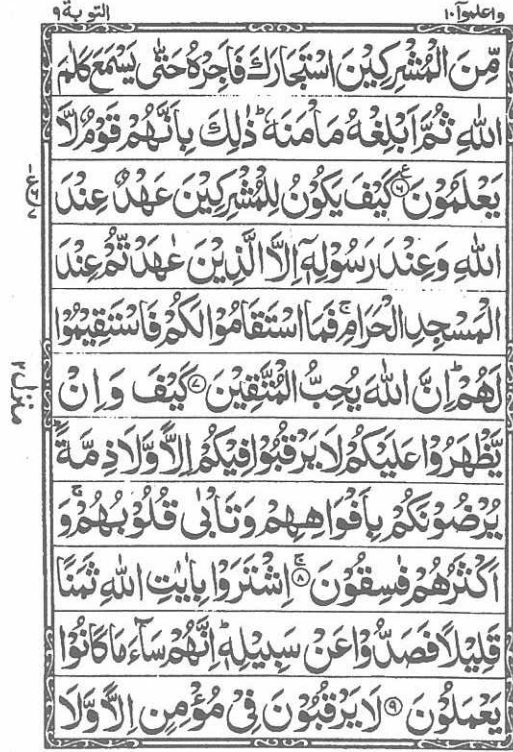 واعلموآ ١٠
التوبة ٩
مِّنَ الْمُشْرِكِيْنَ اسْتَجَارَكَ فَاَجِرْهُ حَتّٰى يَسْمَعَ كَلٰمَ
اللّٰهِ ثُمَّ اَبْلِغْهُ مَاْمَنَهٗ ؕ ذٰلِكَ بِاَنَّهُمْ قَوْمٌ لَّا
يَعْلَمُوْنَ ۟ع ٦ كَيْفَ يَكُوْنُ لِلْمُشْرِكِيْنَ عَهْدٌ عِنْدَ
اللّٰهِ وَعِنْدَ رَسُوْلِهٖۤ اِلَّا الَّذِيْنَ عٰهَدْتُّمْ عِنْدَ
الْمَسْجِدِ الْحَرَامِ ۚ فَمَا اسْتَقَامُوْا لَكُمْ فَاسْتَقِيْمُوْا
لَهُمْ ؕ اِنَّ اللّٰهَ يُحِبُّ الْمُتَّقِيْنَ ٧ كَيْفَ وَاِنْ
يَّظْهَرُوْا عَلَيْكُمْ لَا يَرْقُبُوْا فِيْكُمْ اِلًّا وَّلَا ذِمَّةً ؕ
يُرْضُوْنَكُمْ بِاَفْوَاهِهِمْ وَتَاْبٰى قُلُوْبُهُمْ ۚ وَ
اَكْثَرُهُمْ فٰسِقُوْنَ ۚ ٨ اِشْتَرَوْا بِاٰيٰتِ اللّٰهِ ثَمَنًا
قَلِيْلًا فَصَدُّوْا عَنْ سَبِيْلِهٖ ؕ اِنَّهُمْ سَآءَ مَا كَانُوْا
يَعْمَلُوْنَ ٩ لَا يَرْقُبُوْنَ فِىْ مُؤْمِنٍ اِلًّا وَّلَا
منزل ٢